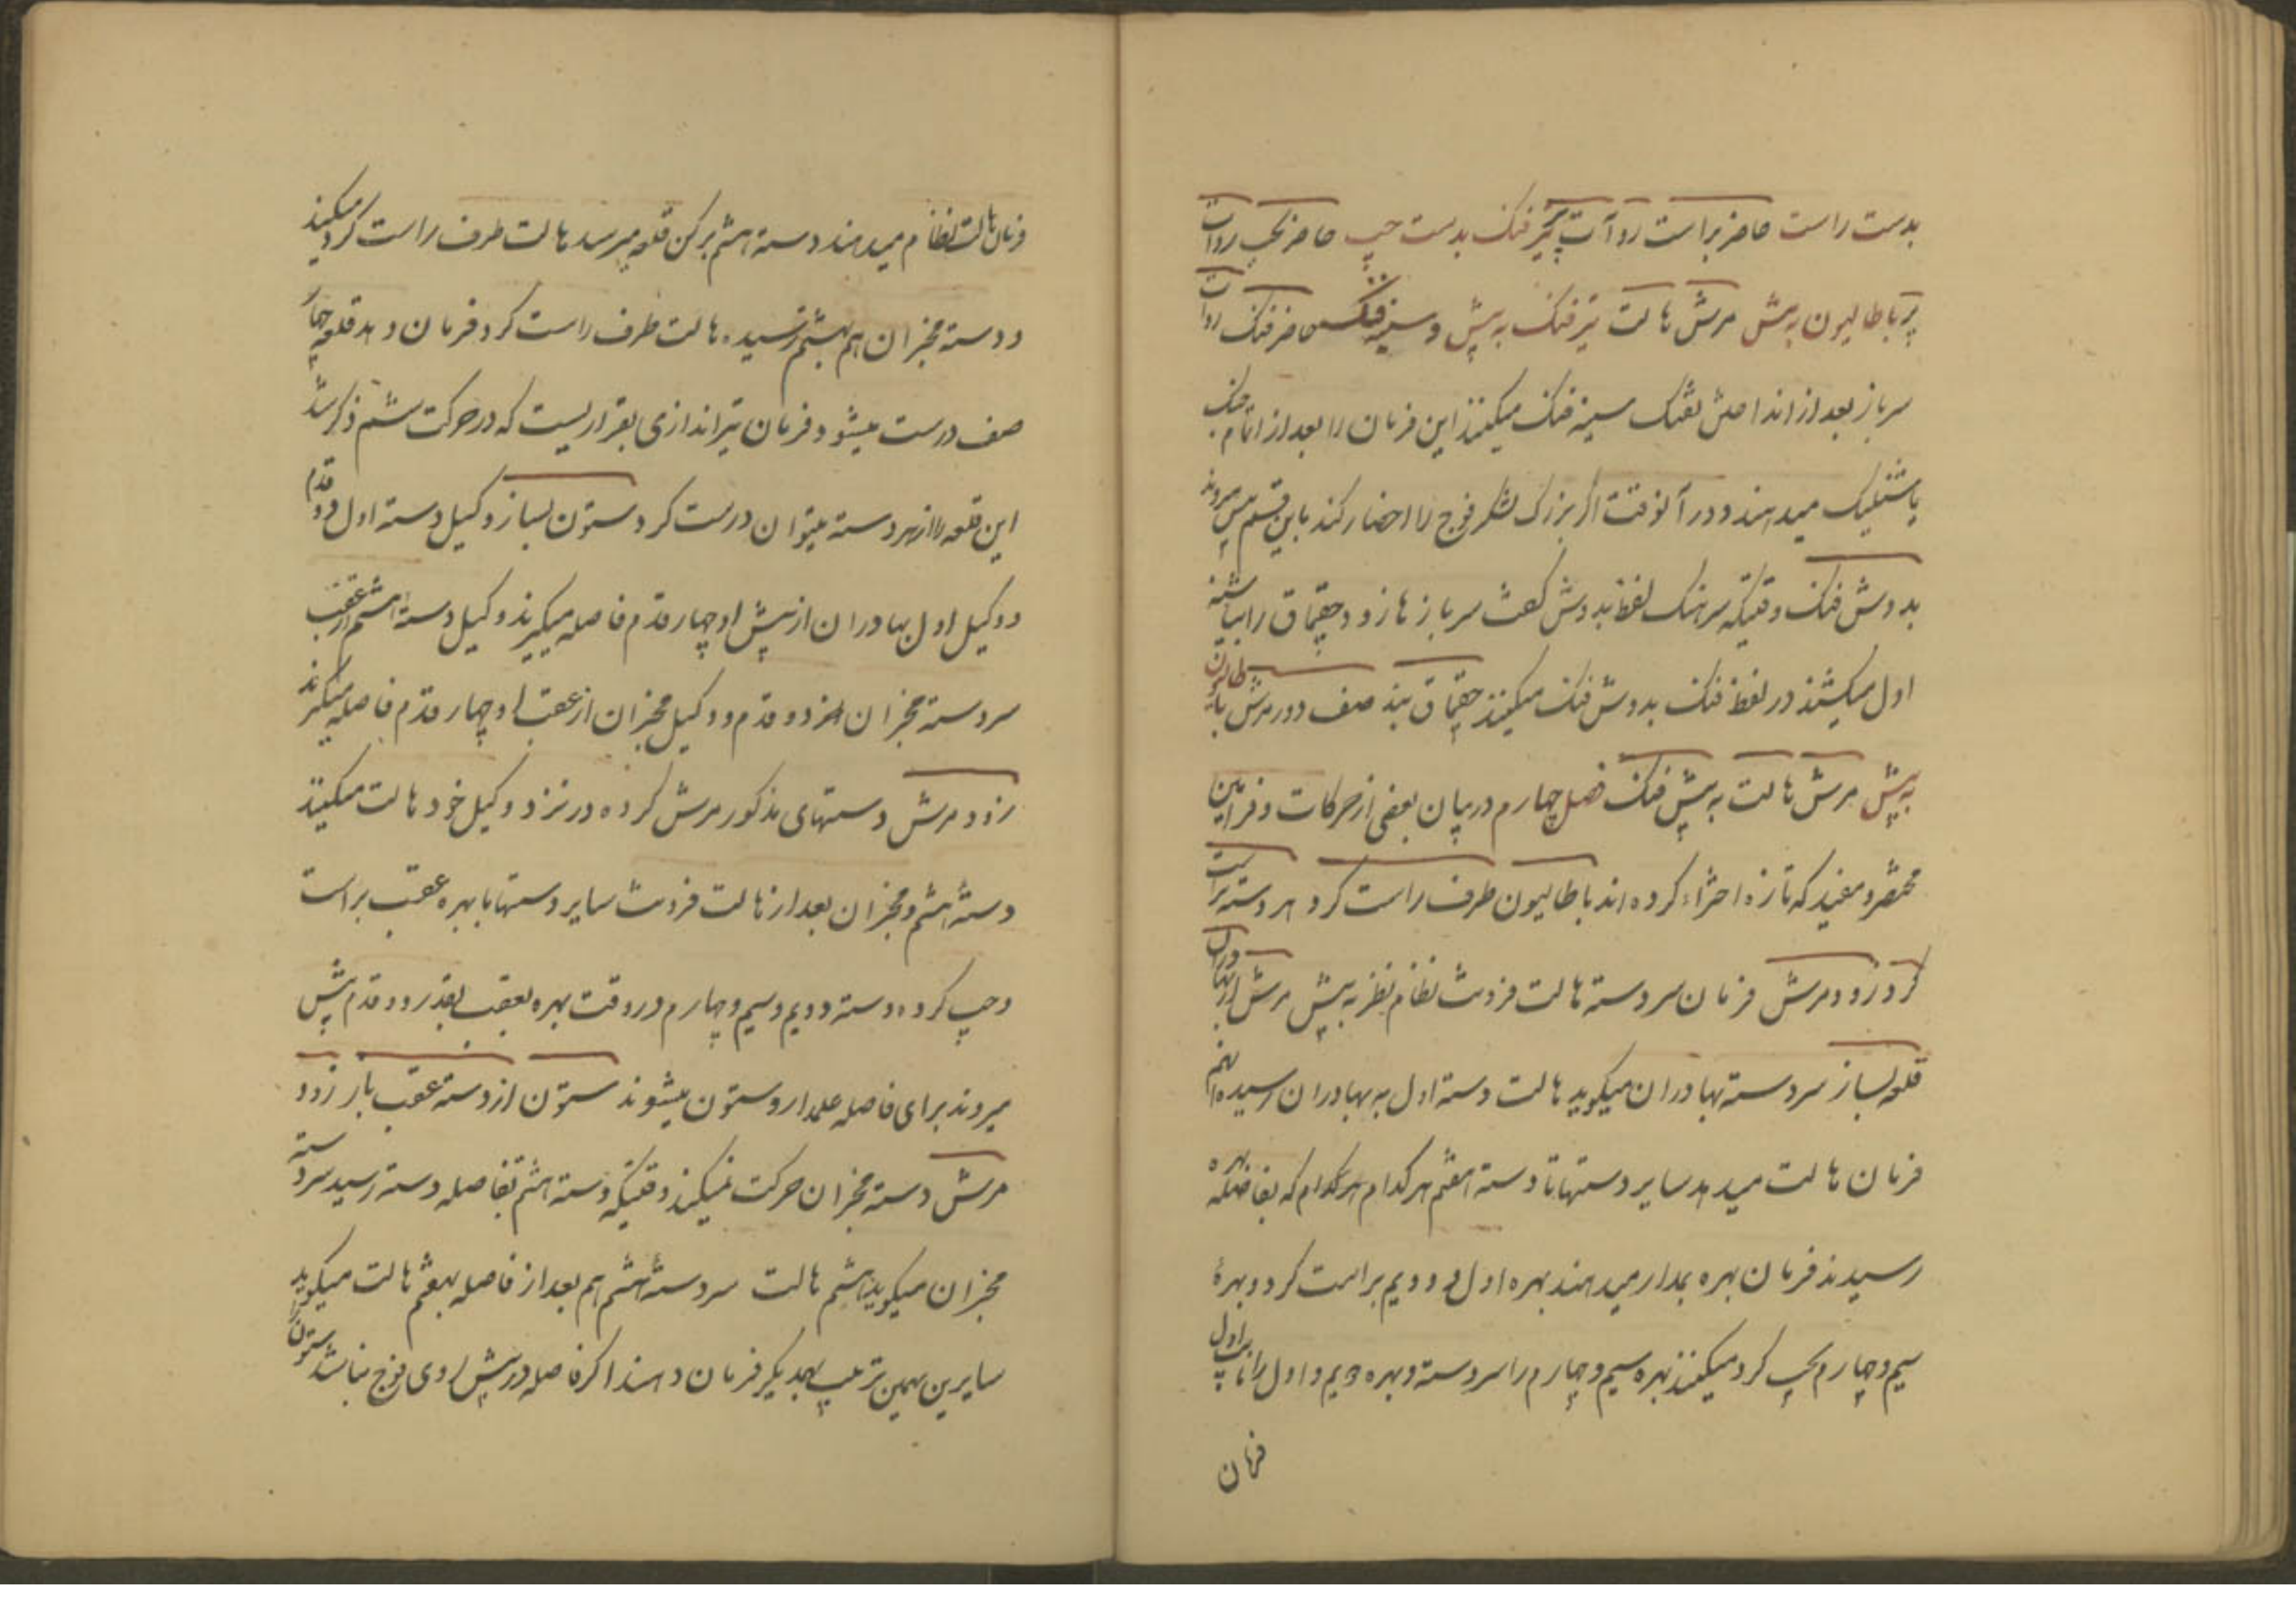 بدست راست حاضر براست رو آت پر تیر فنک بدست چپ حاضر بچپ رو آت
پر باطالیون به پیش مرش هالت تیر فنک به پیش و سینه فنک حاضر فنک رو آت
سرباز بعد از انداختن تفنک سینه فنک میکنند این فرمان را بعد از اتمام جنک
یا شنلیک میدهند و در آنوقت اگر بزرک لشکر فوج را احضار کند باین قسم پس میروند
بدوش فنک وقتیکه سرهنک لفظ بدوش کفت سربازها زود چقماق را بپاشنه
اول میکشند در لفظ فنک بدوش فنک میکنند چقماق بند صف دور مرش باطالیون
به پیش مرش هالت به پیش فنک فصل چهارم در بیان بعضی از حرکات و فرامین
مختصر و مفید که تازه اختراء کرده اند باطالیون طرف راست کرد هر دسته براست
کرد زود مرش فرمان سردسته هالت فردنت نظام نظر به پیش مرش از بهادران
قلعه بساز سردسته بهادران میکوید هالت دسته اول به بهادران رسیده انهم
فرمان هالت میدهد سایر دستها تا دسته هفتم هر کدام هر کدام که بفاصله بهره
رسیدند فرمان بهره بمدار میدهند بهره اول و دویم براست کرد و بهرۀ
سیم و چهارم بچپ کرد میکنند بهره سیم و چهارم را سردسته و بهره دویم و اول را نایب اول
فرمان
فرمان هالت نظام میدهند دسته هشتم برکن قلعه میرسد هالت طرف راست کرد میکنید
و دسته مخبران هم بهشتم نرسیده هالت طرف راست کرد فرمان دهد قلعه چهار
صف درست میشود و فرمان تیراندازی بقراریست که در حرکت ششم ذکر شد
این قلعه را از هر دسته میتوان درست کرد ستون بساز وکیل دسته اول دو قدم
و وکیل اول بهادران از پیش او چهار قدم فاصله میکیرند وکیل دسته هشتم از عقب
سردسته مخبران دو قدم و وکیل مخبران از عقب او چهار قدم فاصله میکیرند
زود مرش دستهای مذکور مرش کرده در نزد وکیل خود هالت میکنند
دستۀ هشتم و مخبران بعد از هالت فردنت سایر دستها با بهره عقب براست
و چپ کرده دسته دویم و سیم و چهارم در وقت بهره بعقب بقدر دو قدم پیش
میروند برای فاصله علمدار و ستون میشوند ستون از دسته عقب باز زود
مرش دسته مخبران حرکت نمیکند وقتیکه دسته هشتم بفاصله دسته رسید سردسته
مخبران میکوید هشتم هالت سردستۀ هشتم هم بعد از فاصله بهفتم هالت میکوید
سایرین بهمین ترتیب بهمدیکر فرمان دهند اکر فاصله در پیش روی فوج نباشد ستون